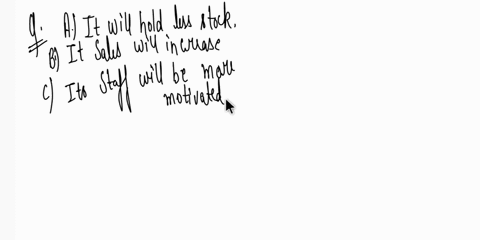 Q. A.) It will hold less stock.
B) It Sales will increase
C) Its Staff will be more
motivated